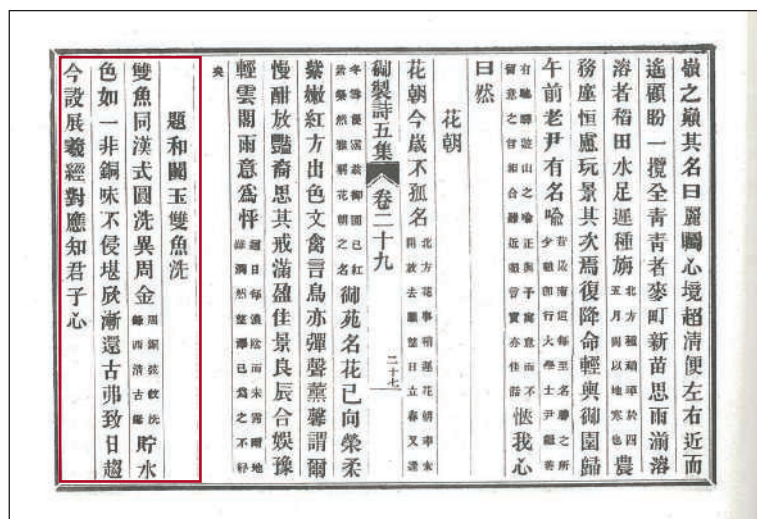 嶺之巔其名曰麗矚心境超清便左右近而
遙顧盼一攬全青青者麥町新苗思雨湔溶
溶者稻田水足遲種旃北方種蓺率於四五月間以地寒也農
務塵恒慮玩景其次焉復降命輕輿御園歸
午前老尹有名喻昔從南巡每至名勝之所少駐即行大學士尹繼善
有馳驛遊山之喻正與予寓意而不留意之旨相合雖近實亦佳話愜我心
曰然
花朝
花朝今歲不孤名北方花事稍遲花朝率未開放去臘望日立春又達
御製詩五集
卷二十九
二十七
冬優霑茲御園已紅紫粲然雅稱花朝之名御苑名花已向榮柔
紫嫩紅方出色文禽言鳥亦彈聲薰馨謂爾
慢酣放豔裔思其戒滿盈佳景良辰合娛豫
輕雲閣雨意爲怦連日每濃陰而未霈爾地雖潤然望澤已爲之不輕
矣
題和闐玉雙魚洗
雙魚同漢式圓洗異周金周銅弦紋洗錄西清古鑑貯水
色如一非銅味不侵堪欣漸還古弗致日趨
今設展羲經對應知君子心